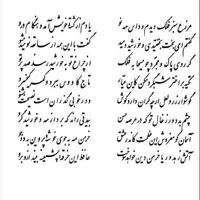 مزرع سبز فلک دیدم و داس مه نو یادم از کشتهٔ خویش آمد و هنگام درو
گفتم ای بخت بخفتیدی و خورشید دمید گفت با این همه از سابقه نومید مشو
گر روی پاک و مجرد چو مسیحا به فلک از چراغ تو به خورشید رسد صد پرتو
تکیه بر اختر شبگرد مکن کاین عیار تاج کاوس ببرد و کمر کیخسرو
گوشوار زر و لعل ار چه گران دارد گوش دور خوبی گذران است نصیحت بشنو
چشم بد دور ز خال تو که در عرصه حسن بیدقی راند که برد از مه و خورشید گرو
آسمان گو مفروش این عظمت کاندر عشق خرمن مه به جوی خوشه پروین به دو جو
آتش زهد و ریا خرمن دین خواهد سوخت حافظ این خرقه پشمینه بینداز و برو